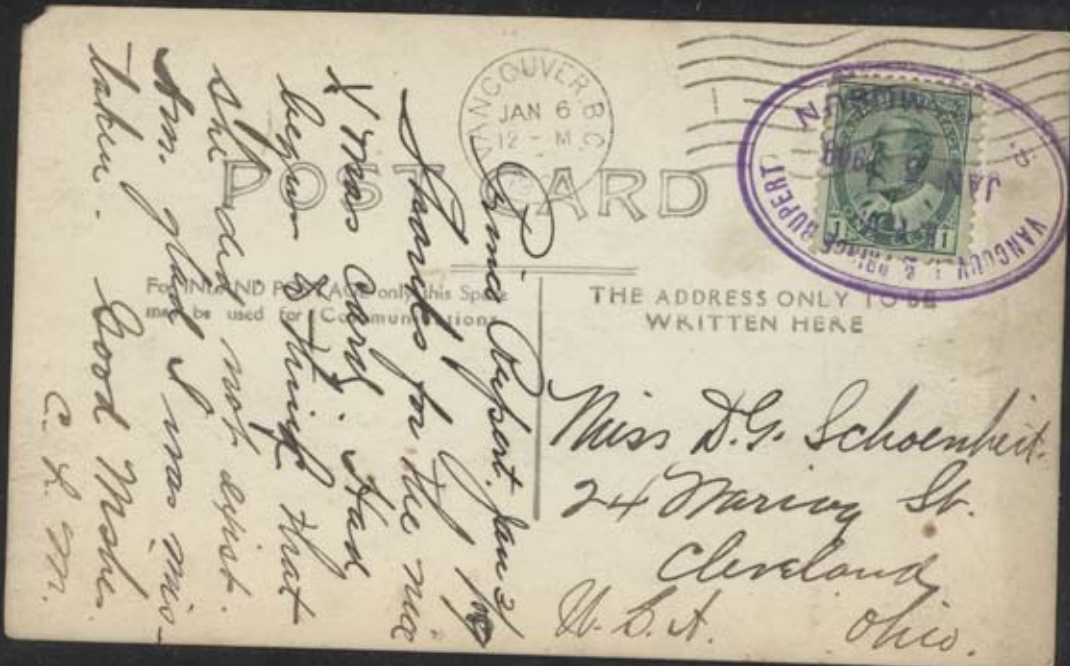 VANCOUVER B.C.
JAN 6
12 - M
POST CARD
VANCOUV. & PRINCE RUPERT.
JAN
1 1
For INLAND POSTAGE only this Space
may be used for Communications
THE ADDRESS ONLY TO BE
WRITTEN HERE
Rupert. Jan 3/
Thanks for the nice
Xmas Card. Had
begun to think that
she did not exist.
Am glad I was mis-
taken. Good Wishes.
C. L. M.
Miss D.G. Schoenheit.
24 St.
Cleveland,
U.S.A. Ohio.